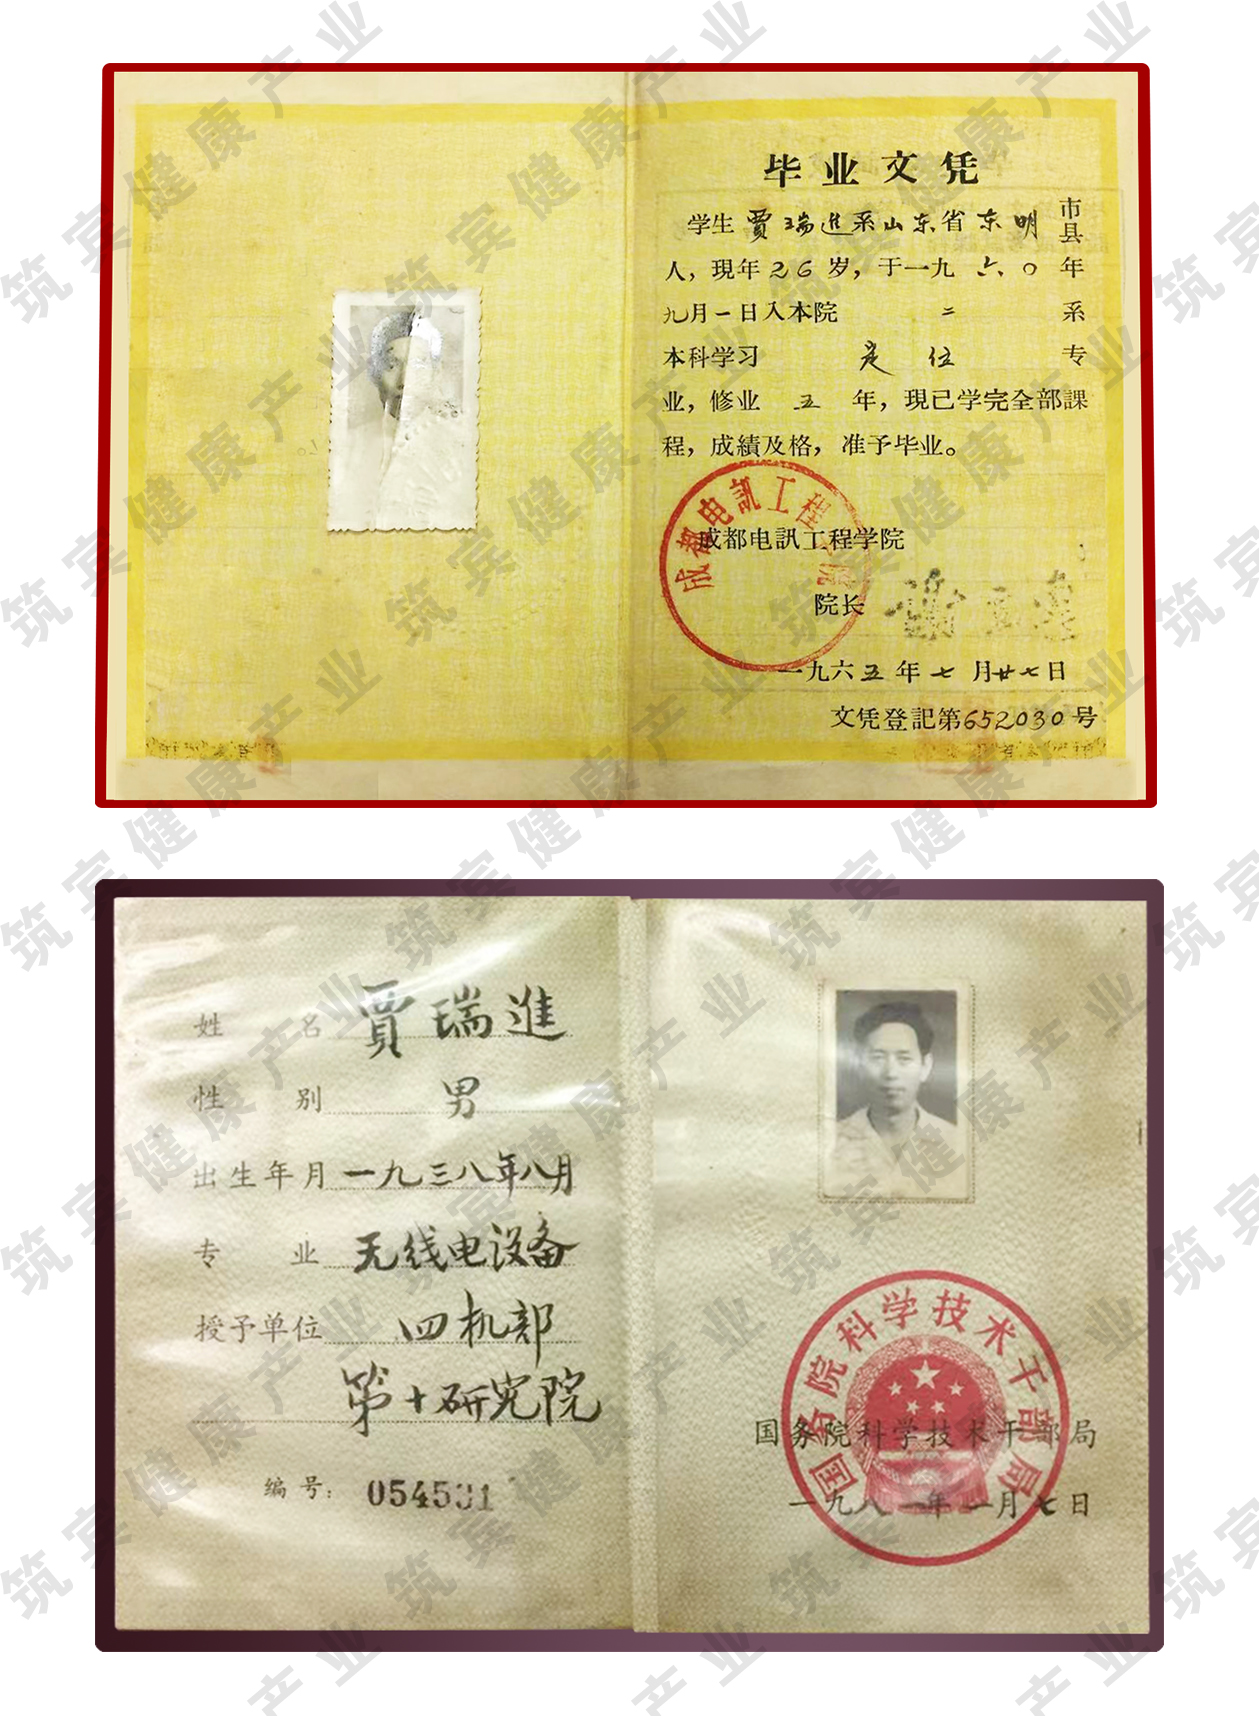 毕业文凭
学生賈瑞進系山东省东明市县
人，現年26岁，于一九六〇年
九月一日入本院二系
本科学习定位专
业，修业五年，現已学完全部課
程，成績及格，准予毕业。
成都电訊工程学院
成都电訊工程学院
院长
一九六五年七月廿七日
文凭登記第652030号
姓名賈瑞進
性别男
出生年月一九三八年八月
专业无线电设备
授予单位四机部
第十研究院
编号：054531
国务院科学技术干部局
国务院科学技术干部局
一九八一年一月七日
筑宾健康产业